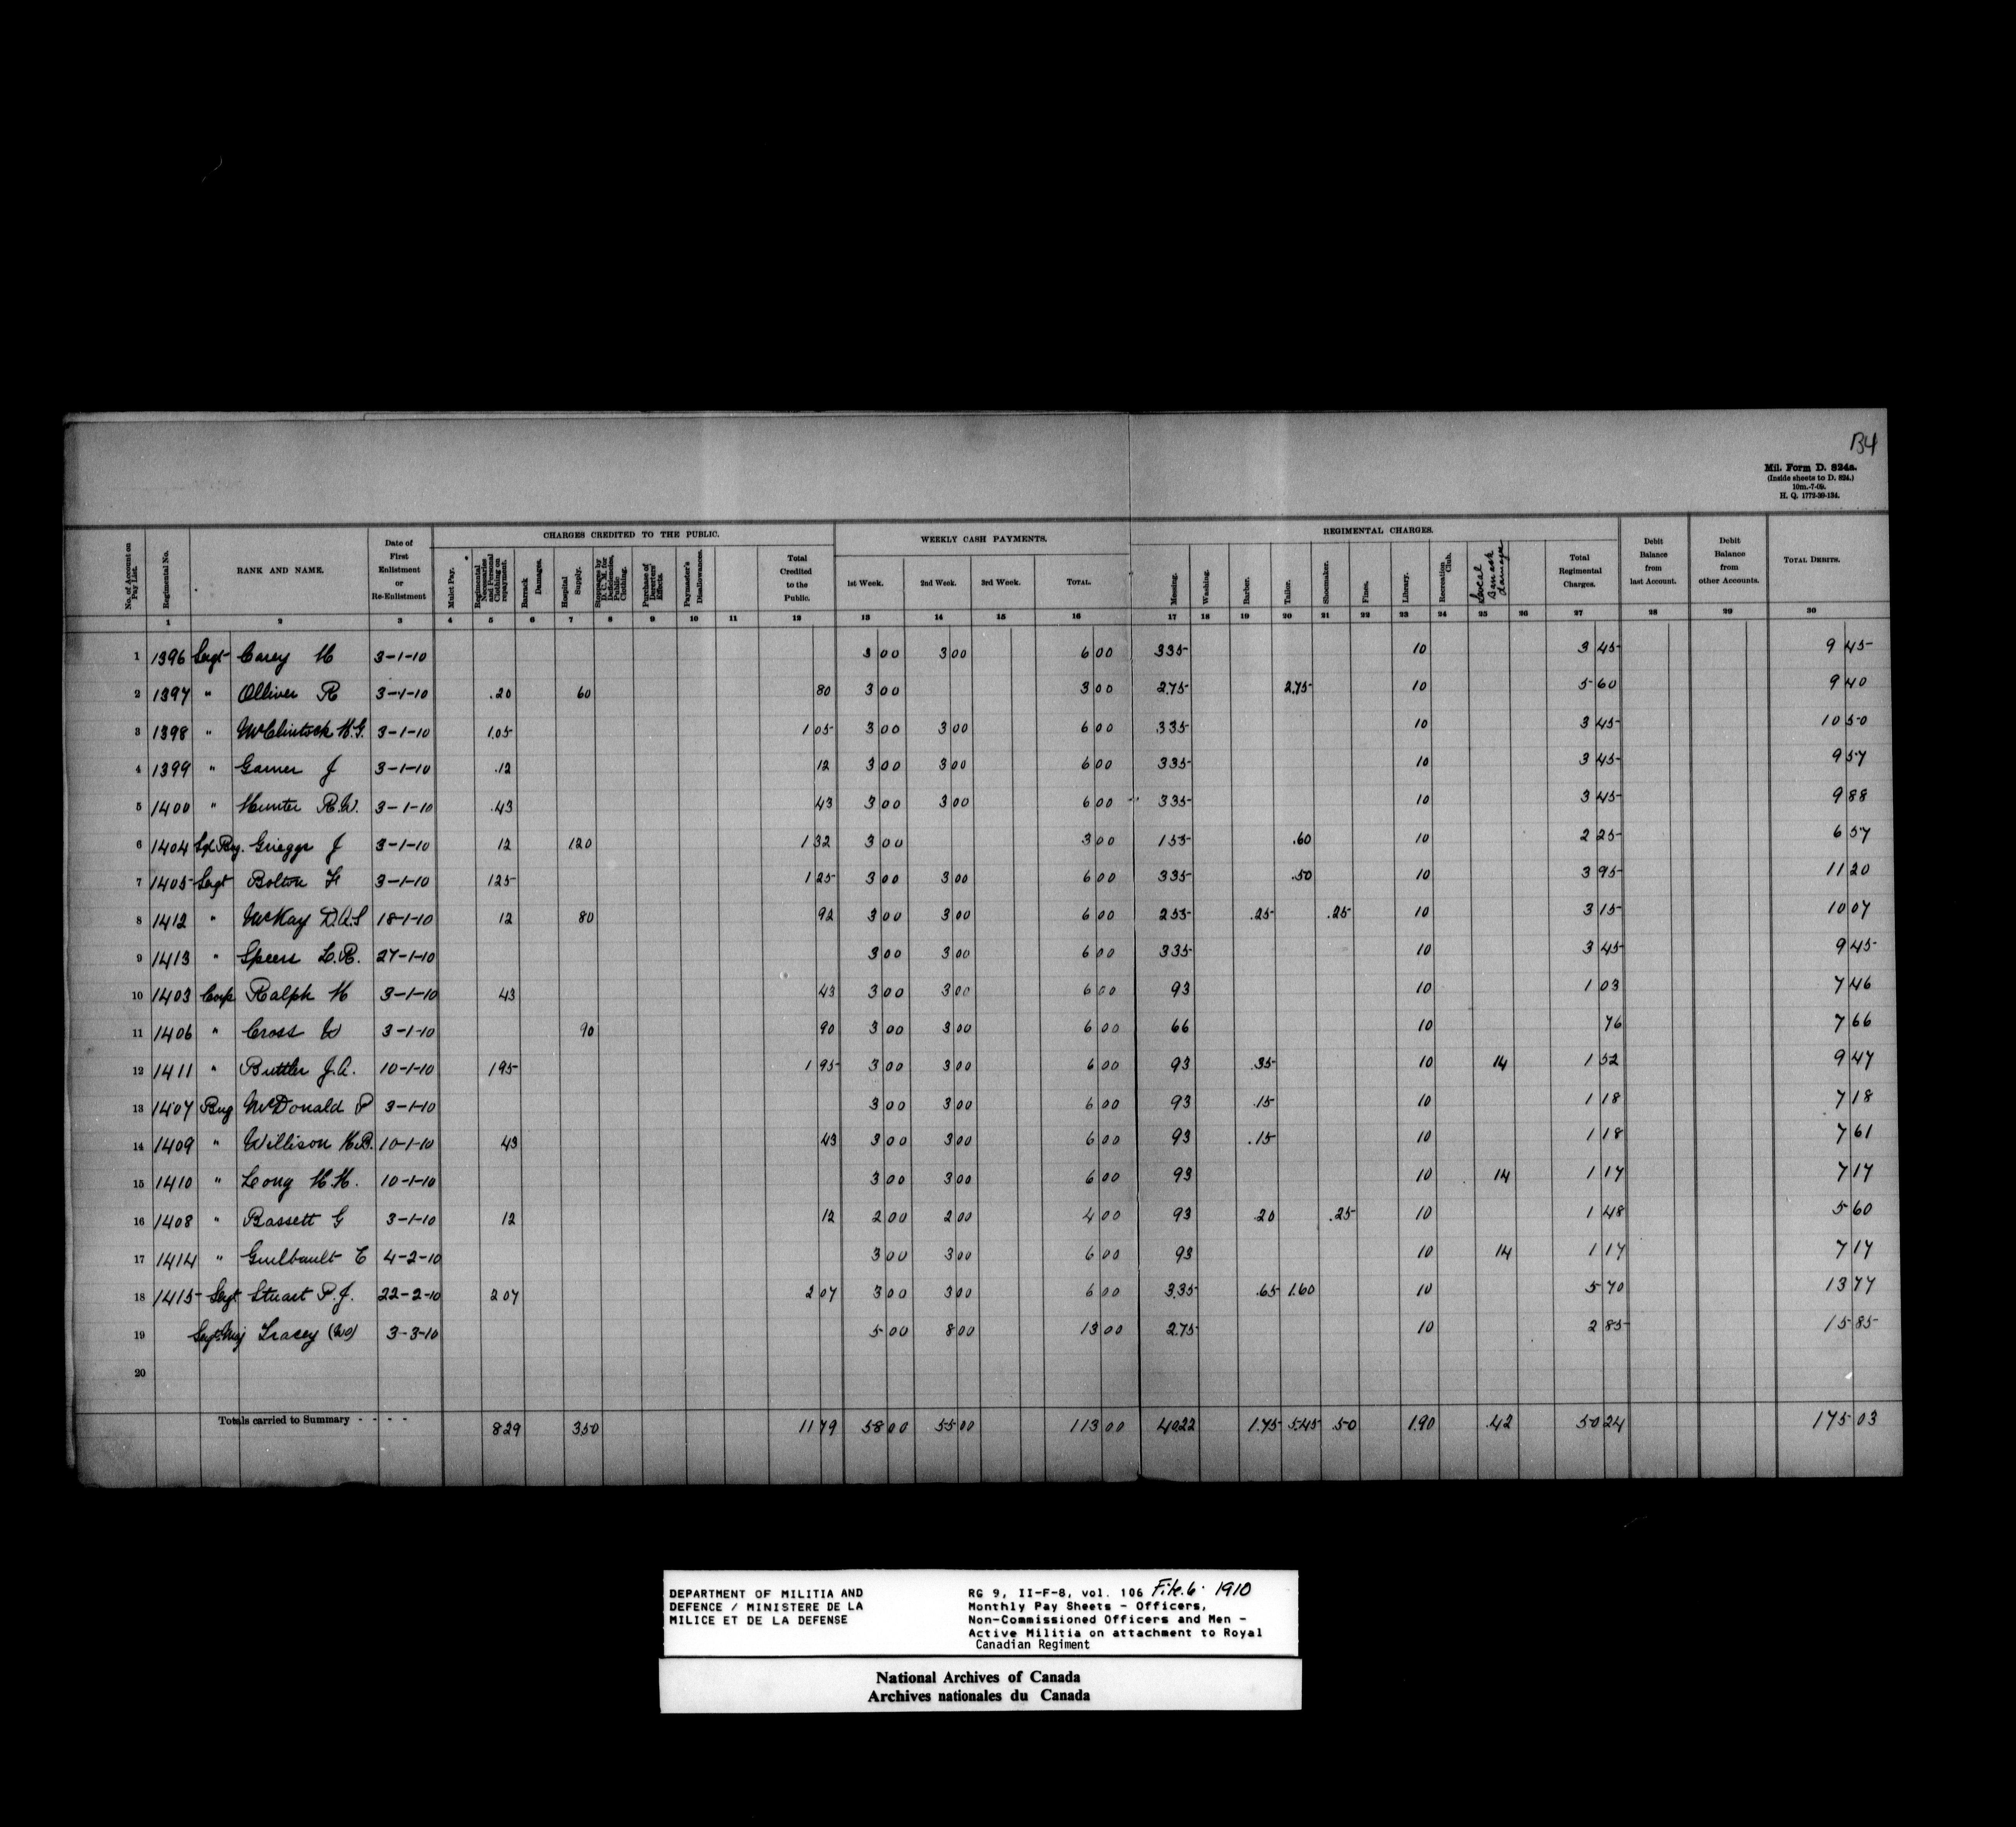 B4
Mil. Form D. 824a.
(Inside sheets to D. 824.)
10m.-7-09.
H. Q. 1772-39-134.
CHARGES CREDITED TO THE PUBLIC. WEEKLY CASH PAYMENTS. REGIMENTAL CHARGES.
No. of Account on Pay List. Regimental No. RANK AND NAME. Date of First Enlistment or Re-Enlistment Mulct Pay. Regimental Necessaries and Personal Clothing on repayment. Barrack Damages. Hospital Supply. Stoppages by D. C. M. for Deficiencies, Public Clothing. Purchase of Deserters' Effects. Paymaster's Disallowances. Total Credited to the Public. 1st Week. 2nd Week. 3rd Week. TOTAL. Messing. Washing. Barber. Tailor. Shoemaker. Fines. Library. Recreation Club. Local Barrack damages Total Regimental Charges. Debit Balance from last Account. Debit Balance from other Accounts. TOTAL DEBITS.
1 2 3 4 5 6 7 8 9 10 11 12 13 14 15 16 17 18 19 20 21 22 23 24 25 26 27 28 29 30
1 1396 Sergt Casey H 3-1-10 3 00 3 00 6 00 335 10 3 45 9 45
2 1397 " Olliver R 3-1-10 .20 60 80 3 00 3 00 2.75 2.75 10 5 60 9 40
3 1398 " McClintock H.G. 3-1-10 1.05 1 05 3 00 3 00 6 00 335 10 3 45 10 50
4 1399 " Garner J 3-1-10 .12 12 3 00 3 00 6 00 335 10 3 45 9 57
5 1400 " Hunter R.W. 3-1-10 .43 43 3 00 3 00 6 00 335 10 3 45 9 88
6 1404 Sgt Bug. Grieggs J 3-1-10 12 120 1 32 3 00 3 00 155 .60 10 2 25 6 57
7 1405 Sergt Bolton F 3-1-10 125 1 25 3 00 3 00 6 00 335 .50 10 3 95 11 20
8 1412 " McKay D.A.S 18-1-10 12 80 92 3 00 3 00 6 00 255 .25 .25 10 3 15 10 07
9 1413 " Speers L.R. 27-1-10 3 00 3 00 6 00 335 10 3 45 9 45
10 1403 Corp Ralph H 3-1-10 43 43 3 00 3 00 6 00 93 10 1 03 7 46
11 1406 " Cross W 3-1-10 90 90 3 00 3 00 6 00 66 10 76 7 66
12 1411 " Buttler J.A. 10-1-10 195 1 95 3 00 3 00 6 00 93 .35 10 14 1 52 9 47
13 1407 Bug McDonald P 3-1-10 3 00 3 00 6 00 93 .15 10 1 18 7 18
14 1409 " Willison H.B. 10-1-10 43 43 3 00 3 00 6 00 93 .15 10 1 18 7 61
15 1410 " Long H.H. 10-1-10 3 00 3 00 6 00 93 10 14 1 17 7 17
16 1408 " Bassett G 3-1-10 12 12 2 00 2 00 4 00 93 .20 .25 10 1 48 5 60
17 1414 " Guilbault E 4-2-10 3 00 3 00 6 00 93 10 14 1 17 7 17
18 1415 Sergt Stuart P.J. 22-2-10 2 07 2 07 3 00 3 00 6 00 3.35 .65 1.60 10 5 70 13 77
19 Sergt Maj Tracey (WO) 3-3-10 5 00 8 00 13 00 2.75 10 2 85 15 85
20
Totals carried to Summary - - - - 829 3.50 11 79 58 00 55 00 113 00 40.22 1.75 5.45 .50 1.90 .42 50 24 175 03
DEPARTMENT OF MILITIA AND
DEFENCE / MINISTERE DE LA
MILICE ET DE LA DEFENSE
RG 9, II-F-8, vol. 106 File.6. 1910
Monthly Pay Sheets - Officers,
Non-Commissioned Officers and Men -
Active Militia on attachment to Royal
Canadian Regiment
National Archives of Canada
Archives nationales du Canada